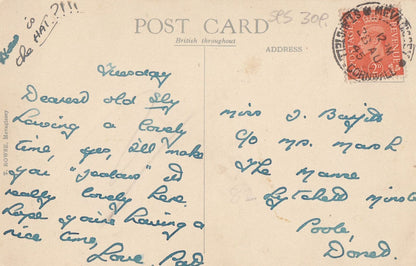 Where is
the HAT?!!!
POST CARD
British throughout
ADDRESS
SES 30p.
MEVAGISSEY
CORNWALL
Tuesday
Dearest old
Having a lovely
time, yes, I'll make
you "jealous" it's
really lovely here.
hope you're having a
nice time,
Love, Pat
Miss J. Bayfitt
C/o Mrs. Marsh
The Manse
Lytchett Minster
Poole,
Dorset.